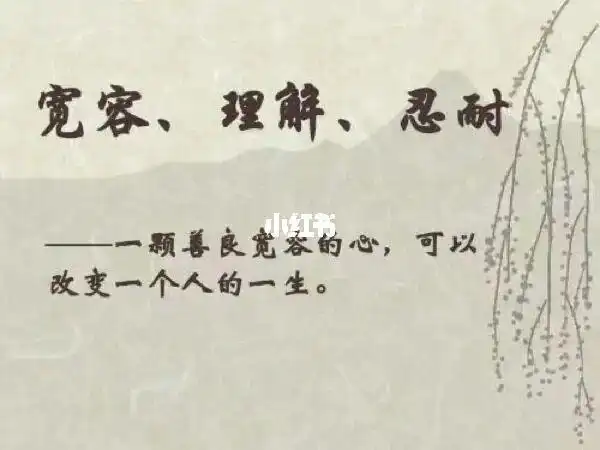 宽容、理解、忍耐
小红书
——一颗善良宽容的心，可以
改变一个人的一生。